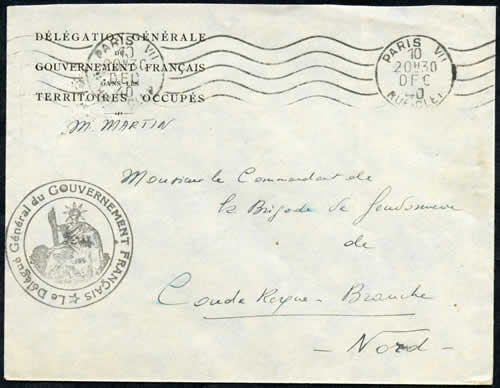 DÉLÉGATION GÉNÉRALE
DU
GOUVERNEMENT FRANÇAIS
DANS LES
TERRITOIRES OCCUPÉS
M. MARTIN
PARIS VII
10
20H30
DEC
40
PARIS VII
10
20H30
DEC
40
Monsieur le Commandant de
la Brigade de Gendarmerie
de
Coudekerque-Branche
- Nord -
Le Délégué Général du GOUVERNEMENT FRANÇAIS ★